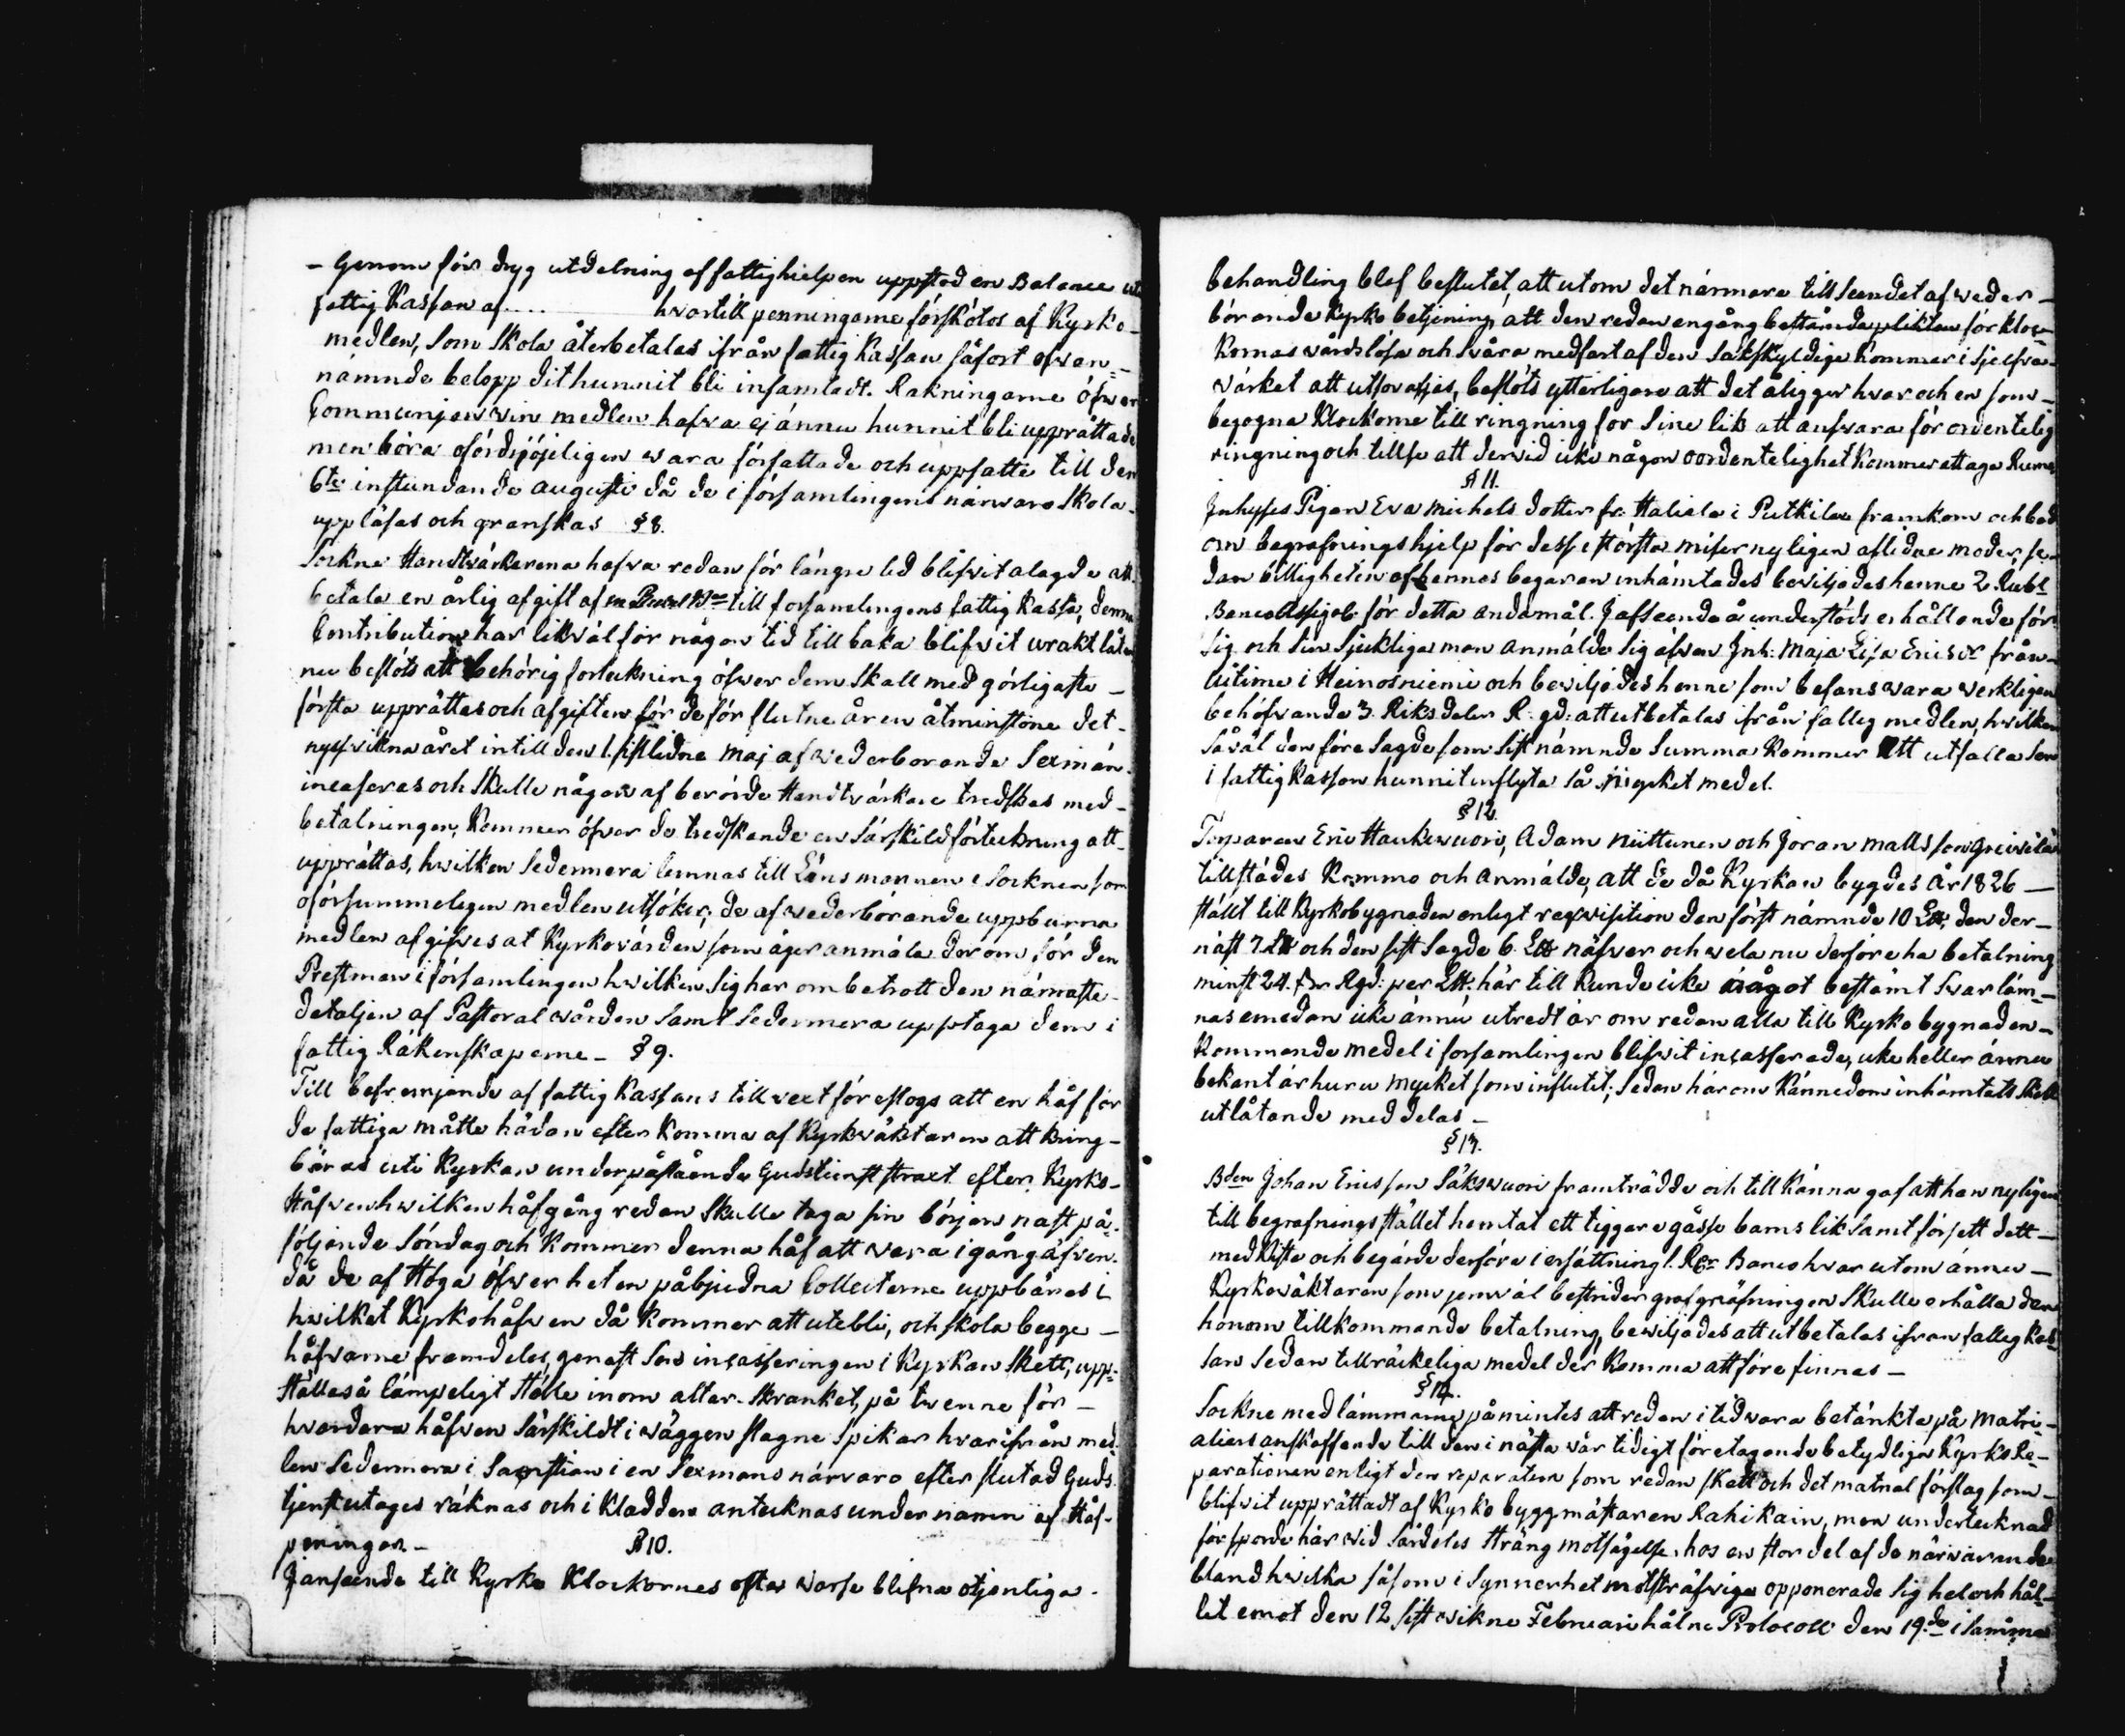 – Genom för dryg utdelning af fattighielpen uppstod en Balance uti
fattig Kassan af.... hvartill penningarne förskötos af Kyrko-
medlen, som skola återbetalas ifrån fattig Kassan såfort ofvan=
nämnde belopp dit hunnit bli insamladt. Räkningarne öfwer
Communion win medlen hafva ej ännu hunnit bli upprättade
men böra ofördröjeligen wara författade och uppsatte till den
6te instundande augusti då de i församlingens närwaro skola
uppläsas och granskas § 8.
Sockne Handtwärkarena hafva redan för längre tid blifvit alagde att
betala en årlig afgift af till församlingens fattig Kassa, denna
Contribution har likväl för någon tid tillbaka blifvit uraktlåten
nu beslöts att behörig forteckning öfwer dem skall med görligaste
första upprättas och afgiften för de förflutne åren åtminstone det
nyssvikna året intill den 1 sistledne Maj af wederborande Sexmän
incaseras och skulle någon af berörde Handtvärkare tredskas med
betalningen, Kommer öfver de tredskande en särskild förteckning att
upprättas, hwilken sedermera lemnas till Länsmannen i Socknen som
oförsummeligen medlen utsöker; de af wederbörande uppburna
medlen afgifves at Kyrkovärden som äger anmäla derom för den
Prestman i församlingen hwilken sig har ombetrott den närmaste
detaljen af Pastoralvården samt sedermera upptaga dem i
fattig Räkenskaperne – § 9.
Till befremjande af fattig Kassans tillvext föreslogs att en håf för
de fattiga måtte hädan efter komma af Kyrkväktaren att kring-
bäras uti Kyrkan under påstående Gudstienst straxt efter Kyrko-
Håfven hwilken håfgång redan skulle taga sin början näst på-
följande Söndag och kommer denna håf att vara i gång äfven
då de af Höga öfwerheten påbjudna Collecterne uppbäras i
hwilket Kyrkohåfven då kommer att utebli, och skola begge
håfvarne framdeles, genast som incasseringen i Kyrkan skett, upp=
ställas å lämpeligt ställe inom altar-skranket, på twenne för
hvardera håfven särskildt i väggen slagne spikar hvarifrån med
len sedermera i Sacristian i en Sexmans närvaro efter slutad Guds
tjenst utages räknas och i Kladden antecknas under namn af Håf-
peningar – § 10.
I anseende till Kyrko Klockornes ofta worse blifna otjenliga
behandling blef beslutet, att utom det närmare tillseendet af weder-
börande Kyrko betjening, att den redan engång bestämda plikten för kloc-
kornas vårdslösa och svåra medfart af den sakskyldige kommer i sjelfva
värket att utsovas, beslöts ytterligare att det åligger hvar och en som
begagna Klockorne till ringning för sine lik att ansvara för ordentelig
ringning och tillse att dervid icke någon oordentelighet kommer att äga Rum
§ 11.
Inhyses Pigan Eva Michelsdotter fr. Haliala i Putkila framkom och bad
om begrafningshjelp för dess i största miser nyligen aflidne moder, se-
dan billigheten af hennes begäran inhämtades beviljades henne 2 Rubl
Banco Assign. för detta ändamål. I afseende å understöds erhållande för
sig och sin sjukliga man anmälde sig äfven Inh: Maja Lisa Ericsdr från
Siitime i Heinosniemi och beviljades henne som befans wara werkligen
behöfvande 3 Riksdaler R:gd: att utbetalas ifrån fattig medlen, hvilken
såväl den föresagde som sist nämnde summa kommer att utfalla sen
i fattig Kassan hunnit inflyta så mycket medel.
§ 12.
Torparen Eric Haukewuori, Adam Niittunen och Joran Mattsson
tillstädes Kommo och anmälde, att de då Kyrkan bygdes År 1826 –
stält till Kyrkobygnaden enligt reqvisition den först nämnde 10 L℔, den der-
näst 7 L℔ och den sist sagde 6 L℔ näfver och wela nu derföre ha betalning
minst 24 Rgd: per L℔: här till kunde icke något bestämt svar läm-
nas emedan icke ännu utredt är om redan alla till Kyrkobygnaden
kommande medel i forsamlingen blifvit incasserade, icke heller ännu
bekant är huru mycket som influtit; sedan härom kännedom inhämtats skall
utlåtande meddelas –
§ 13.
Bden Johan Ericsson Säkswuori framträdde och tillkänna gaf att han nyligen
till begrafningsstället hemtat ett tiggare gosse barns lik samt försett dett
med kista och begärde derföre i ersättning 1. Banco hvar utom ännu –
Kyrkoväktaren som jemväl bestrider grafgräfningen skulle erhålla den
honom tillkommande betalning, beviljades att utbetalas ifran fattig kas
san sedan tillräckeliga medel der komma att förefinnas –
§ 14.
Sockne medlämmarne påmintes att redan i tid vara betänkta på matri-
aliers anskaffande till den i nästa vår tidigt företagande betydliga Kyrko Re-
parationen enligt den reparation som redan skett och det matrial förslag som
blifvit upprättadt af Kyrko byggmästaren Rahikain, men undertecknad
försporde här wid särdeles sträng motsägelse hos en stor del af de närvarande
bland hvilka såsom i synnerhet motsträfvige opponerade sig hel och hål-
let emot den 12 sistvikne Februari hålne Protocoll den 19de i samma